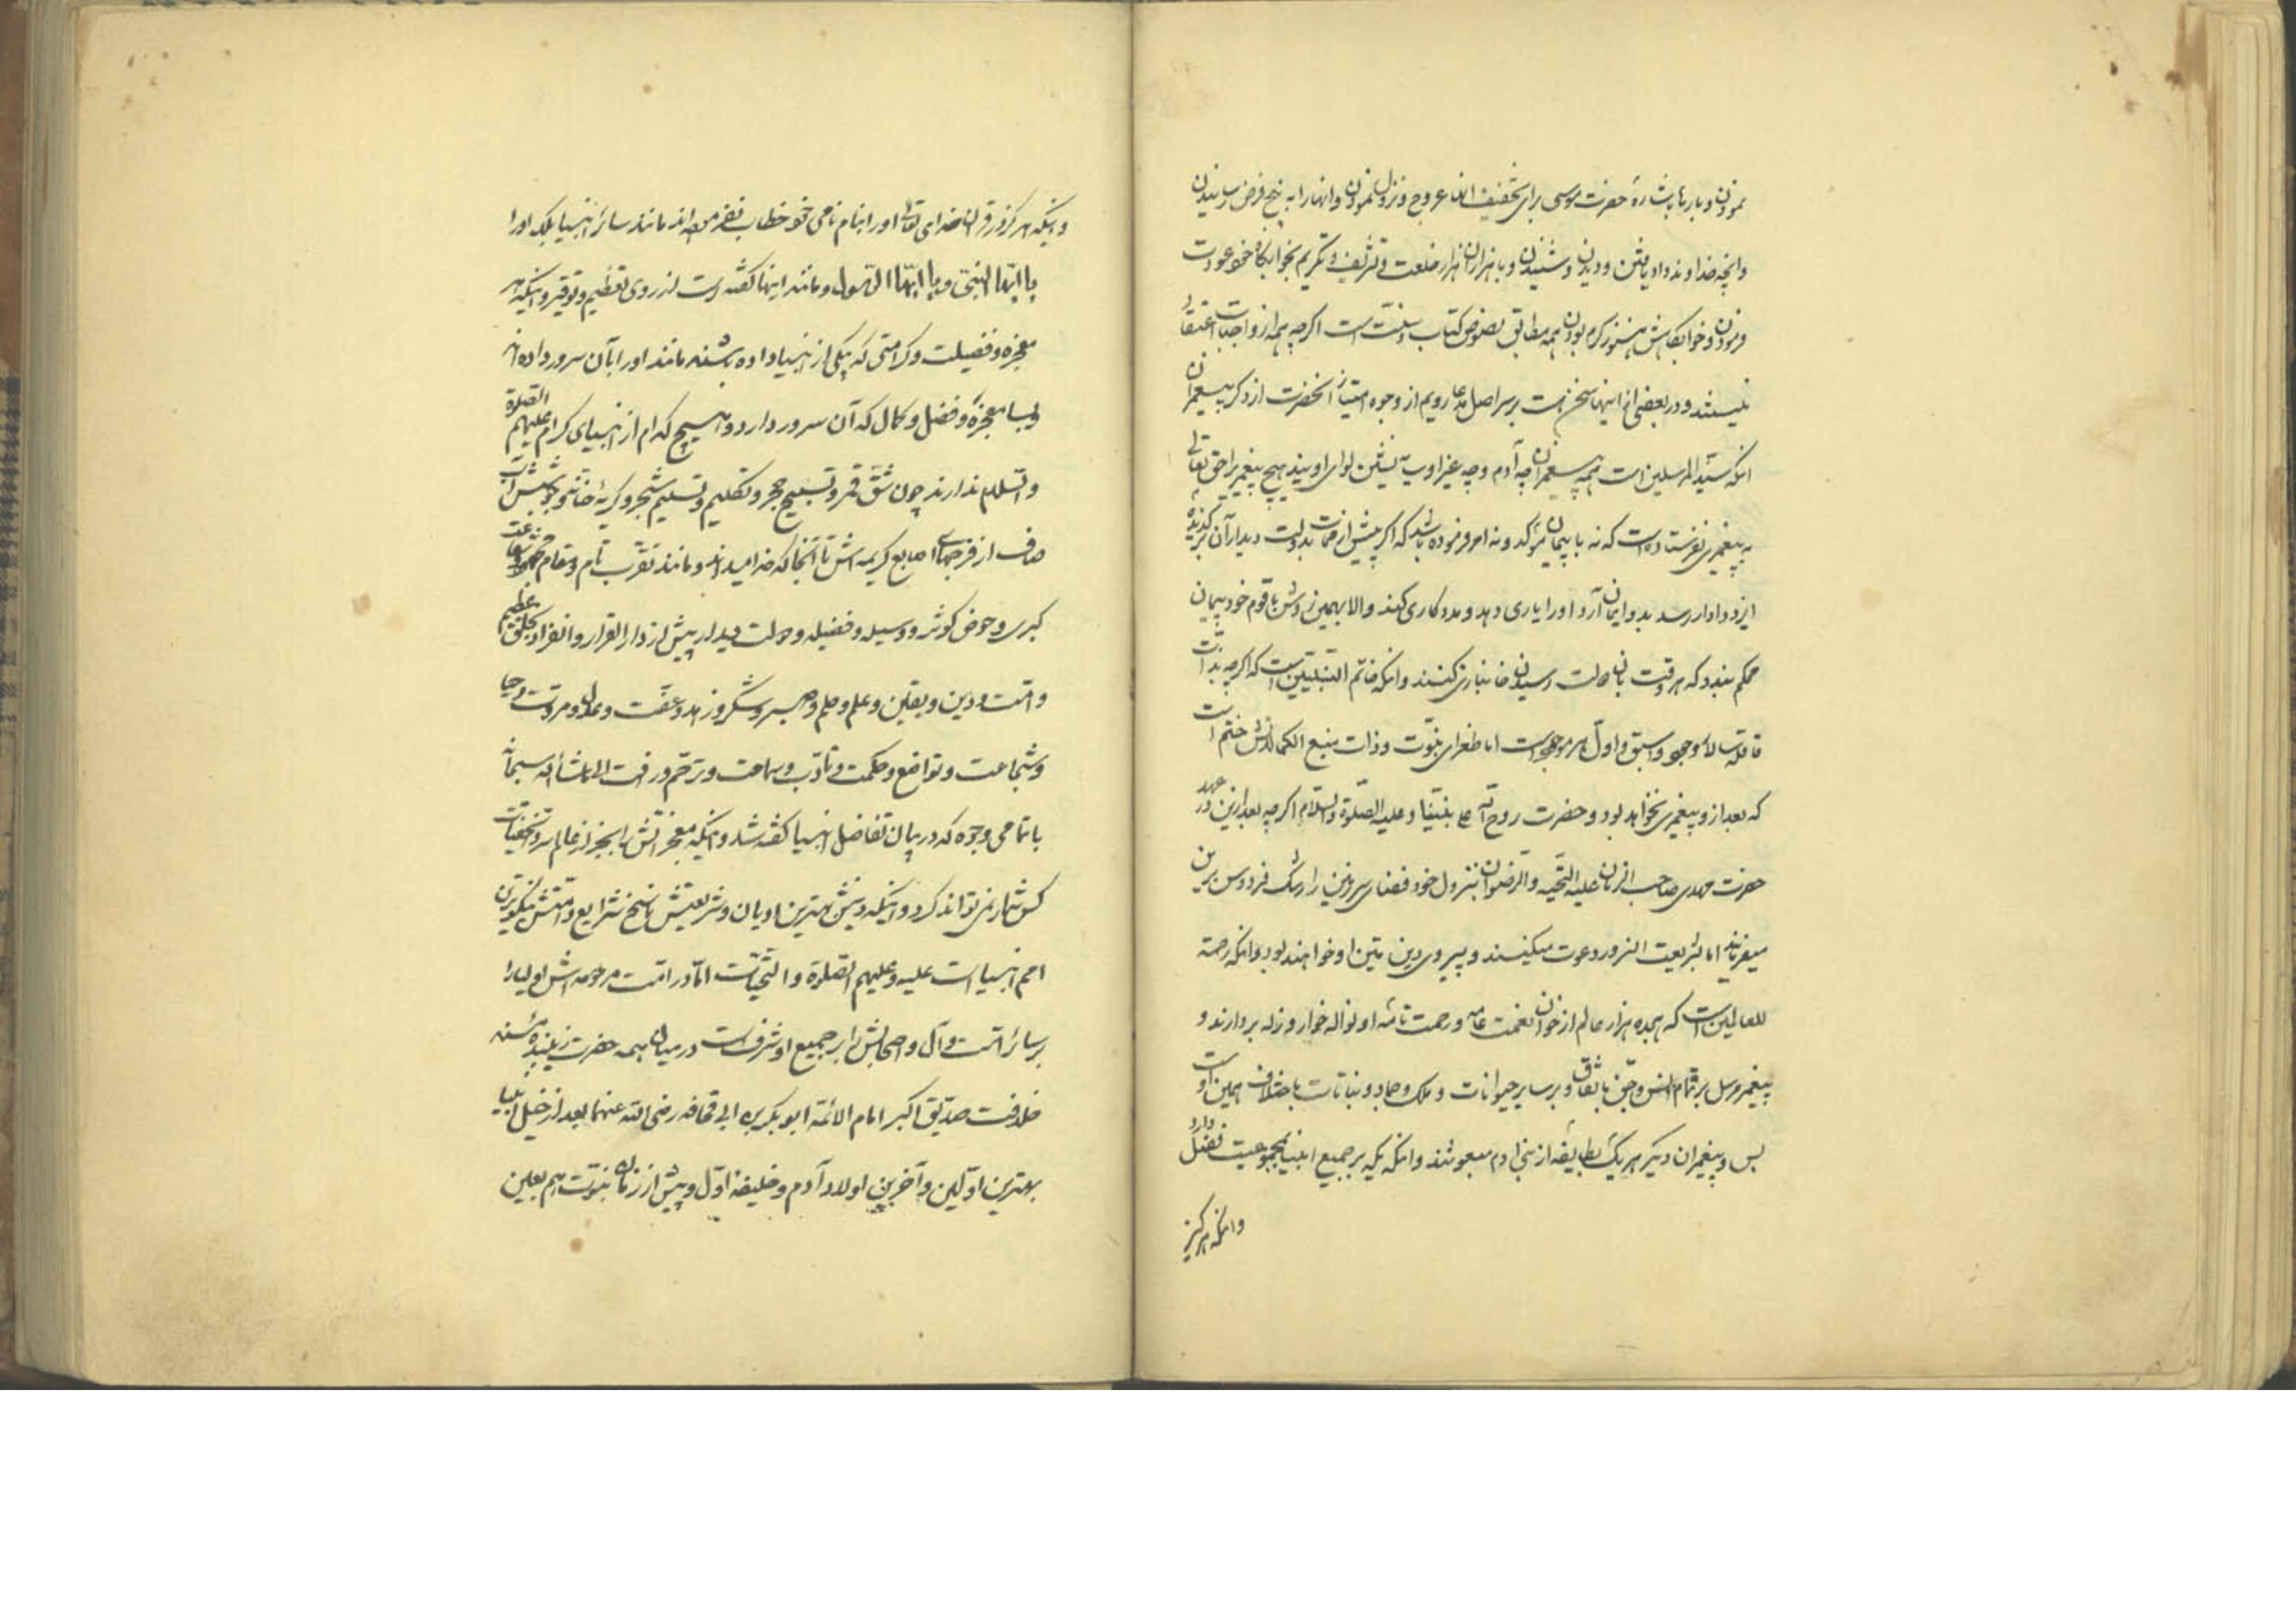 نمودن و بارها باشارهٔ حضرت موسی برای تخفیف آنها عروج و نزول نمودن و آنها را به پنج فرض رسانیدن
و آنچه خداوند داد یافتن و دیدن و شنیدن و با هزاران هزار خلعت و تشریف و تکریم بخوابگاه خود عودت
فرمودن و خوابگاهش هنوز گرم بودن همه مطابق نصوص کتاب و سنت است اگرچه همه از واجبات اعتقاد
نیستند و در بعضی از اینها سخن است بر سر اصل مدعا رویم از وجوه امتیاز آنحضرت از دگر پیغمبران
آنکه سید المرسلین است همه پیغمبران چه آدم و چه غیر او پیش لوای اویند هیچ پیغمبر را حق تعالی
به پیغمبری نفرستاده است که نه با پیمان مؤکد ونه امر فرموده باشد که اگر پیش از ممات بدولت دیدار آن گزیدهٔ
ایزد دادار رسد بدو ایمان آرد او را یاری دهد و مددکاری کند والا بهمین روش با قوم خود پیمان
محکم بندد که هر وقت بآن دولت رسیدن جانبازی کنند و آنکه خاتم النبیین است که اگرچه بذات
قافله سالار وجود و اسبق و اول هر موجود است اما طغرای نبوت و ذات منبع الکمالاتش ختم است
که بعد از و پیغمبری نخواهد بود و حضرت روح الله علی نبینا و علیه الصلوة والسلام اگرچه بعد ازین در عهد
حضرت مهدی صاحب الزمان علیه التحیه والرضوان بنزول خود فضای سرزمین را رشک فردوس برین
میفرمایند اما بشریعت انسرور دعوت میکنند و پیروی دین متین او خواهند بود و آنکه رحمة
للعالمین است که هجده هزار عالم از خوان نعمت عامه و رحمت تامه او نواله خوار و زله بردارند و
پیغمبر مرسل بر تمام انس و جن باتفاق و بر سایر حیوانات و ملک و جماد و نباتات باختلاف همین اوست
بس و پیغمبران دیگر هر یک بطایفه از بنی آدم مبعوثند و آنکه یکه بر جمیع انبیا بمجموعیت فضل دارد
وانکه هرگز
و اینکه هرگز در قرآن خدای تعالی او را بنام نامی خود خطاب نفرموده اند مانند سائر انبیا بلکه او را
یا ایها النبی و یا ایها الرسول و مانند اینها گفته است از روی تعظیم و توقیر و اینکه هر
معجزه و فضیلت و کرامتی که بیکی از انبیا داده باشند مانند او را بآن سرور داده اند
و بسا معجزه و فضل و کمال که آن سرور دارد و هیچ کدام از انبیای کرام علیهم الصلوة
والسلام ندارند چون شق قمر و تسبیح حجر و تکلیم و تسلیم شجر و گریهٔ حنانه و جوشش آب
صاف از فرجهای اصابع کریمه اش تا آنجا که خدا میداند و مانند تقرب تام و مقام محمود و شفاعت
کبری و حوض کوثر و وسیله و فضیله و دولت دیدار پیش از دار القرار و انفراد بخلق عظیم
و امت و دین و یقین و علم و حلم و صبر و شکر و زهد و عفت و عدل و مروت و حیا
و شجاعت و تواضع و حکمت و تأدب و سماحت و ترحم و رافت الی ماشاء الله سبحانه
با تمامی وجوه که در بیان تفاضل انبیا گفته شد و اینکه معجزاتش را بجز از عالم سر و الخفیات
کس شمار نمی تواند کرد و اینکه دینش بهترین ادیان و شریعتش ناسخ شرایع و امتش نیکوترین
امم انبیا است علیه و علیهم الصلوة والتحیات اما در امت مرحومه اش اولیا را
بر سائر امت و آل و اصحابش را بر جمیع او شرف است در میان همه حضرت زیبندهٔ مسند
خلافت صدیق اکبر امام الائمة ابو بکر بن ابی قحافه رضی الله عنهما بعد از خیل انبیا
بهترین اولین و آخرین اولاد آدم و خلیفهٔ اول و پیش از زمان نبوت هم بعلین